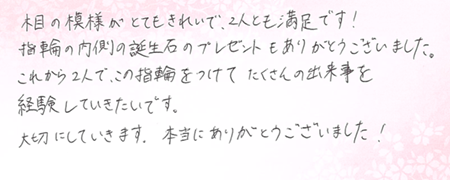 木目の模様がとてもきれいで、2人とも満足です!
指輪の内側の誕生石のプレゼントもありがとうございました。
これから2人で、この指輪をつけてたくさんの出来事を
経験していきたいです。
大切にしていきます. 本当にありがとうございました!